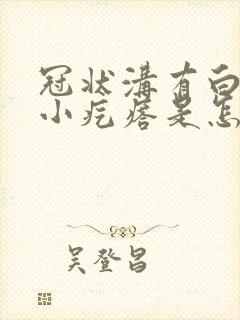 冠状溝有白
小疙瘩是怎
吴登昌